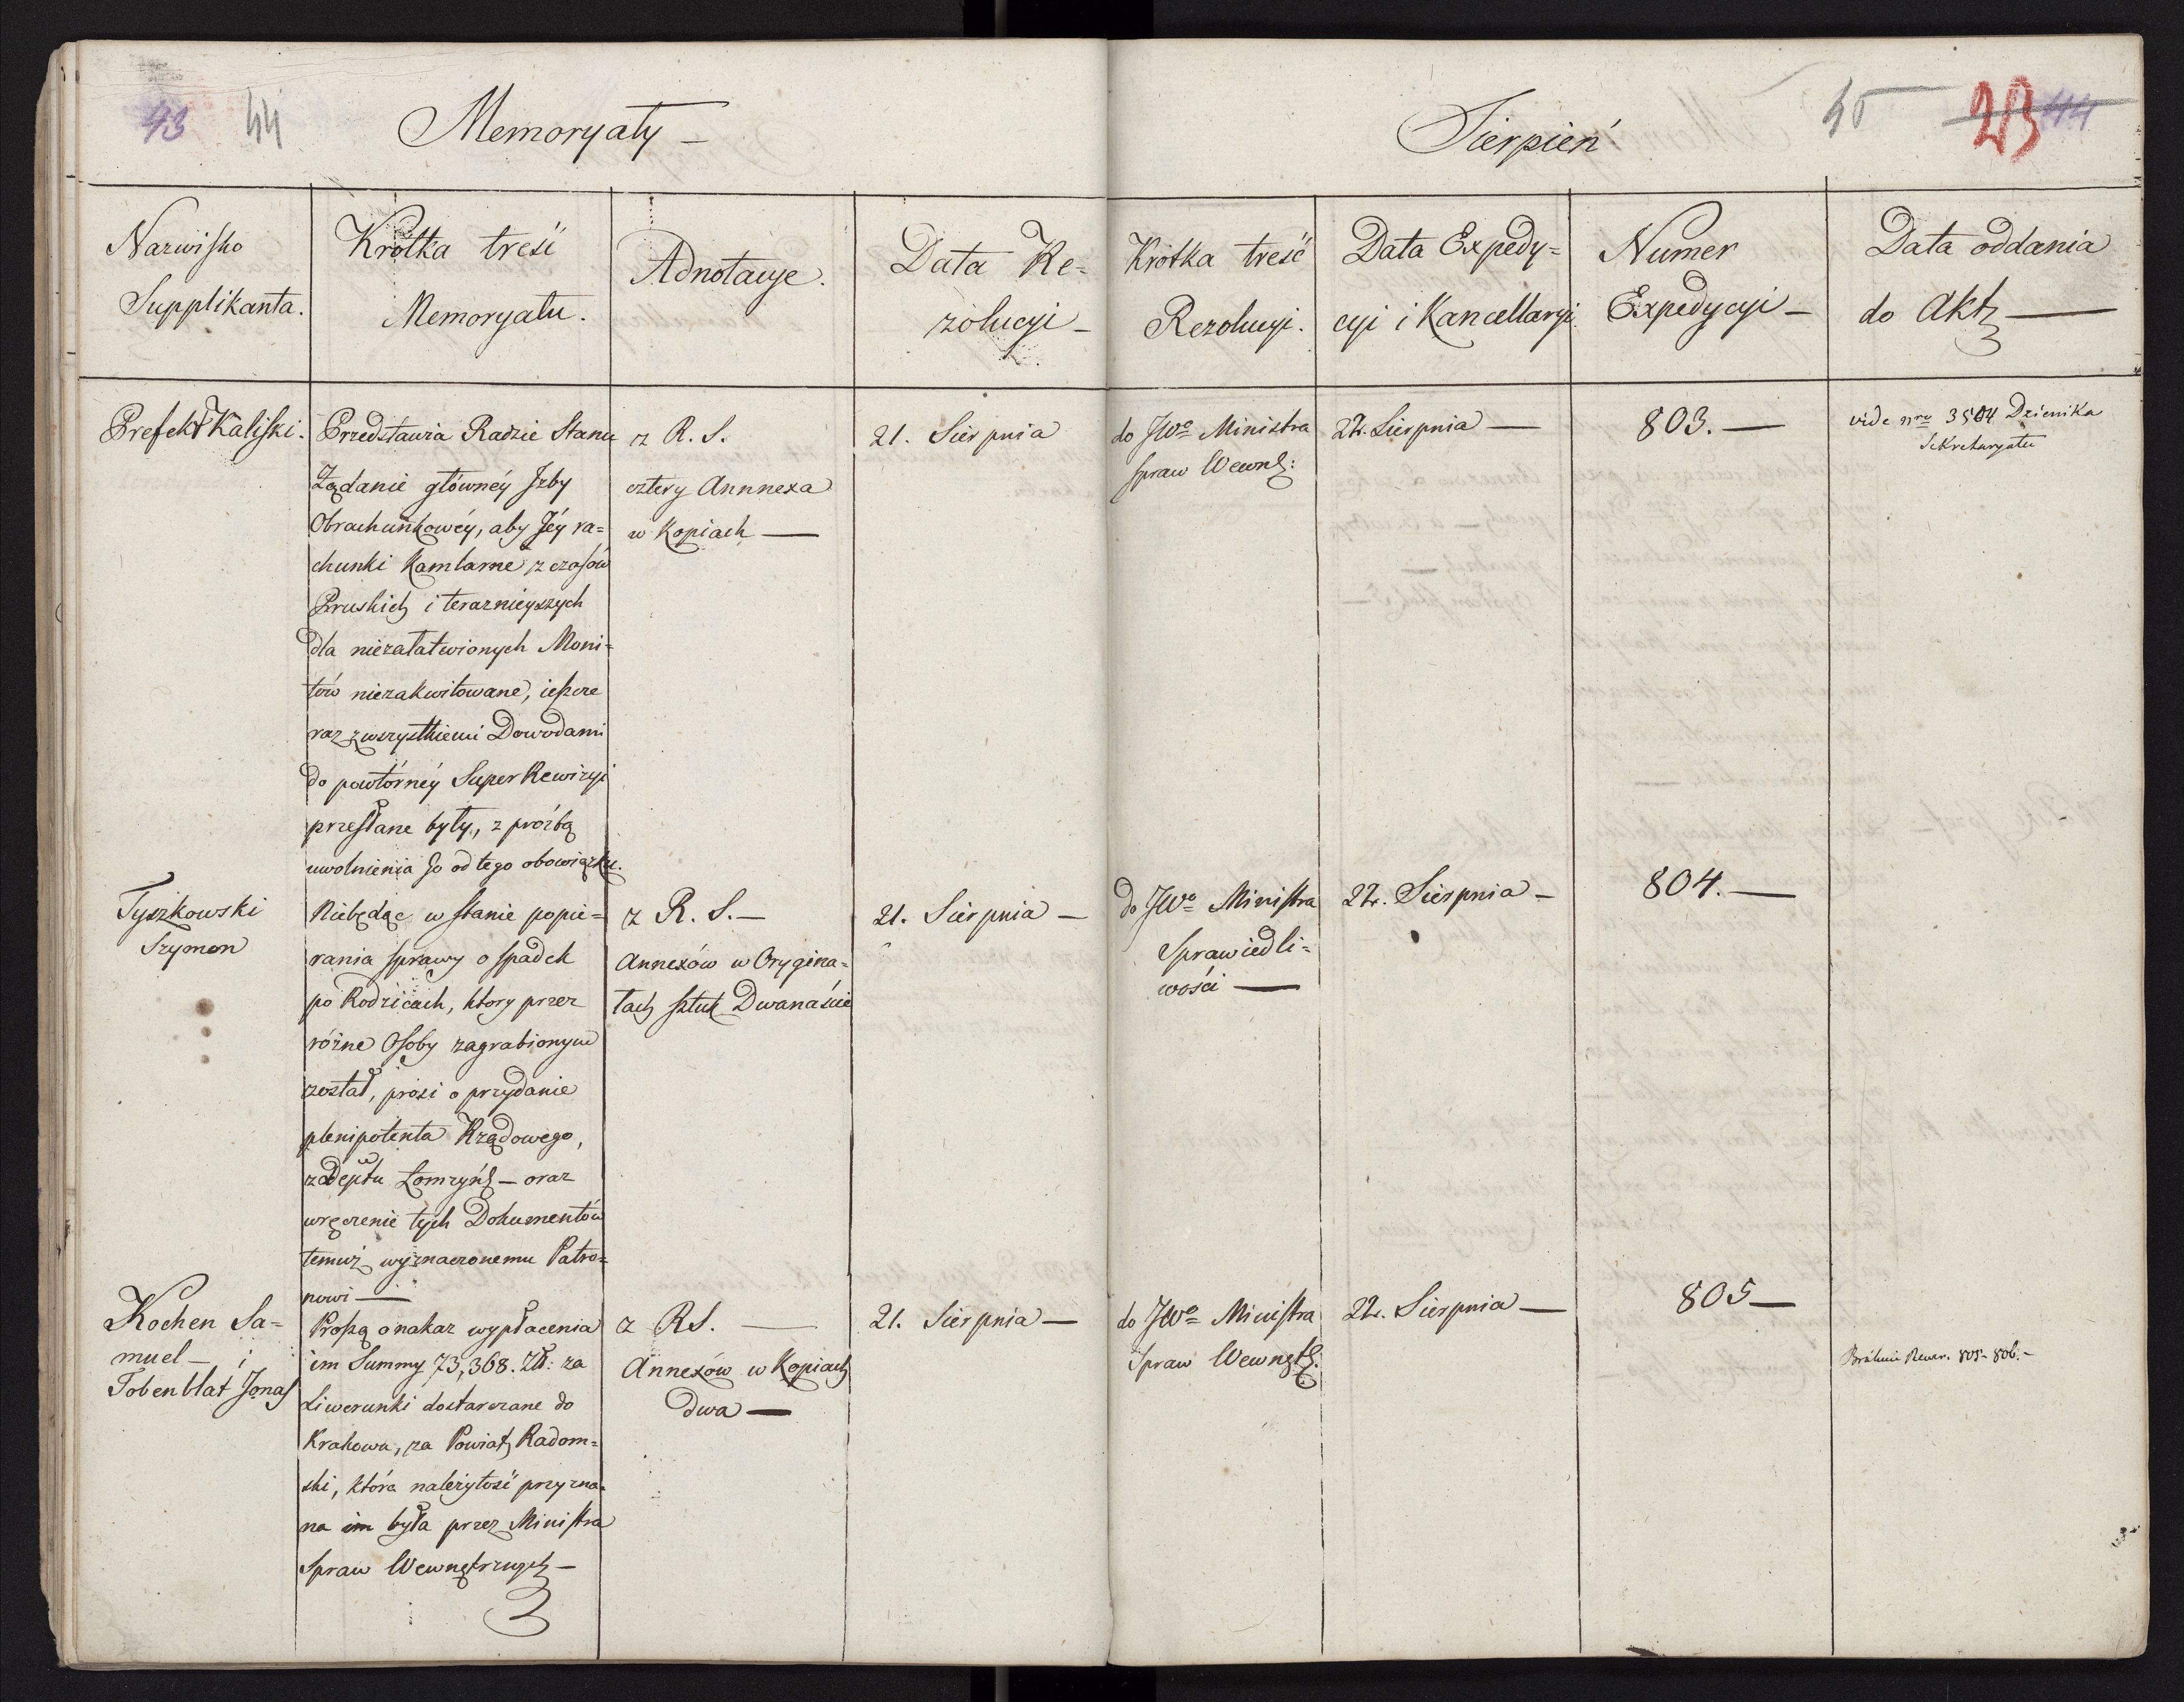 43 44
Memoryały –
Sierpień
45 23 44
Nazwisko
Supplikanta.
Krótka treść
Memoryału.
Adnotacye.
Data Re=
zolucyi –
Krótka treść
Rezolucyi.
Data Expedy=
cyi i Kancellaryi
Numer
Expedycyi –
Data oddania
do Akt —
Prefekt Kaliski.
Przedstawia Radzie Stanu
Żądanie główney Izby
Obrachunkowéy, aby Jéy ra=
chunki Kamlarne z czasów
Pruskich i teraznieyszych
dla niezałatwionych Moni=
tów niezakwitowane, ieszcze
raz z wszystkiemi Dowodami
do powtórnéy Super Rewizyi
przesłane były, z prozbą
uwolnienia Jo od tego obowiązku.
z R. S.
cztery Annnexa
w Kopiach —
21. Sierpnia
do JWo Ministra
Spraw Wewnę:
22. Sierpnia —
803. —
vide nro 3504 Dzienika
Sekretaryatu
Tyszkowski
Szymon
Niebędąc w stanie popie=
rania sprawy o spadek
po Rodzicach, ktory przez
różne Osoby zagrabionym
został, prosi o przydanie
plenipotenta Rządowego,
z Deptu Łomzyńs – oraz
wręczenie tych Dokumentów
temuż wyznaczonemu Patro=
nowi —
z R. S. –
Annexów w Orygina=
łach sztuk Dwanaście
21. Sierpnia –
do JWo Ministra
Sprawiedli=
wości —
22. Sierpnia –
804. —
Kochen Sa=
muel – i
Tobenblat Jonas
Proszą o nakaz wypłacenia
im Summy 73,368. Zł: za
Liwerunki dostarczane do
Krakowa, za Powiat Radom=
ski, która należytość przyzna=
na im była przez Ministra
Spraw Wewnętrznych –
z RS. —
Annexów w Kopiach
dwa —
21. Sierpnia —
do JWo Ministra
Spraw Wewnętz.
22. Sierpnia —
805 —
805 – 806. –